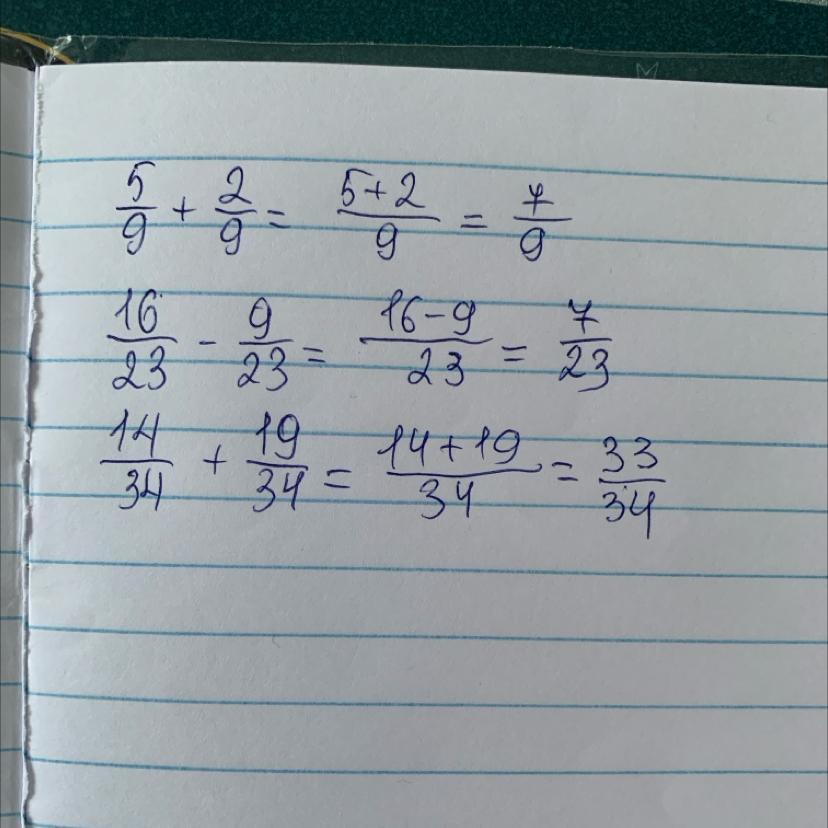 5/9 + 2/9 = (5+2)/9 = 7/9
16/23 - 9/23 = (16-9)/23 = 7/23
14/34 + 19/34 = (14+19)/34 = 33/34